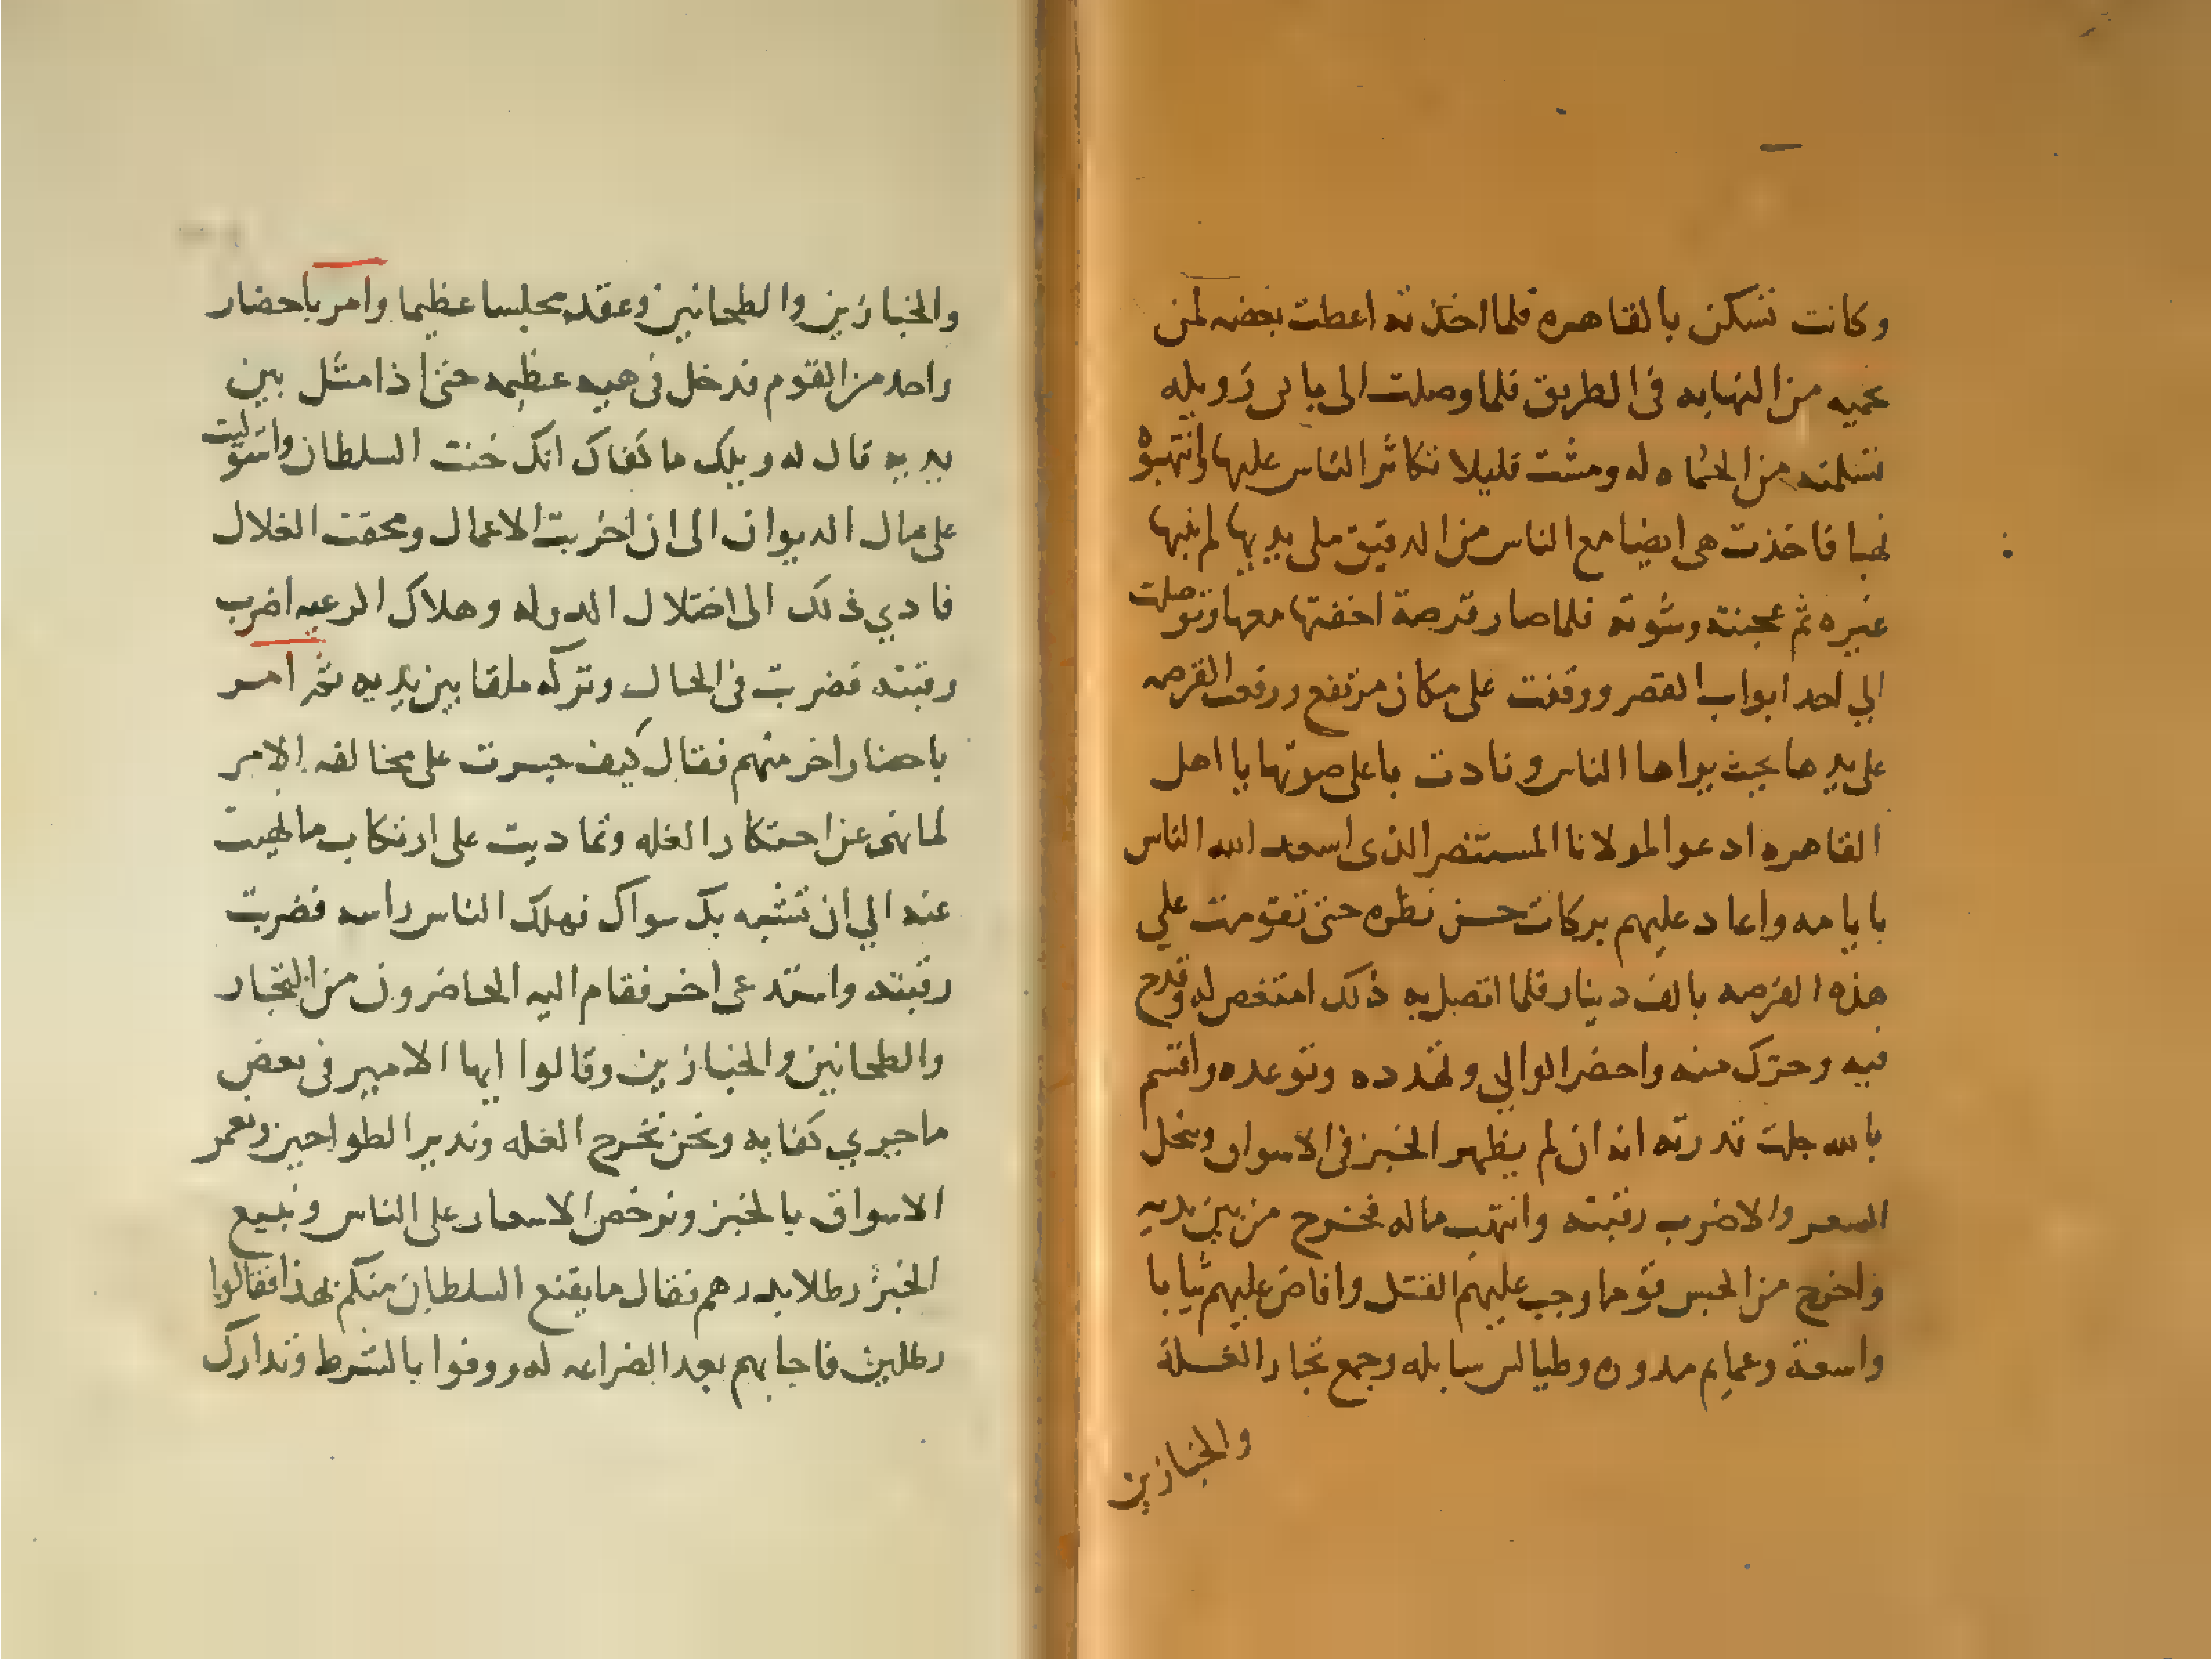 وكانت تسكن بالقاهره فلما اخذته اعطت بعضه لمن
يحميه من النهابه في الطريق فلما وصلت الى باب زويله
تسلمته من الحماه له ومشت قليلا تكاثر الناس عليها وانتهبوه
نهبا فاخذت هي ايضا مع الناس من الدقيق ملى يديها لم ينبها
غيره ثم عجنته وشوته فلما صار قرصة اخفتها معها وتوصلت
الي احد ابواب القصر ووقفت على مكان مرتفع ورفعت القرصه
على يدها بحيث يراها الناس ونادت باعلى صوتها يا اهل
القاهره ادعوا لمولانا المستنصر الذى اسعد الله الناس
بايامه واعاد عليهم بركات حسن نظره حتى تقومت علي
هذه القرصه بالف دينار فلما اتصل به ذلك امتغص له وقدح
فيه وحرك منه واحضر الوالي وتهدده وتوعده واقسم
بالله جلت قدرته انه ان لم يظهر الخبز في الاسواق وينحل
السعر والا ضرب رقبته وانتهب ماله فخرج من بين يديه
واخرج من الحبس قوما وجب عليهم القتل وافاض عليهم ثيابا
واسعة وعمايم مدوره وطيالس سابله وجمع تجار الغلة
والخبازين
والخبازين والطحانين وعقد مجلسا عظيما وامر باحضار
واحد من القوم فدخل في هيه عظيمه حتى اذا مثل بين
يديه قال له ويلك ما كفاك انك خنت السلطان واستوليت
على مال الديوان الى ان اخربت الاعمال ومحقت الغلال
فادي ذلك الى اختلال الدوله وهلاك الرعيه اضرب
رقبته فضربت في الحال وتركه ملقا بين يديه ثم امر
باحضار اخر منهم فقال كيف جسرت على مخالفه الامر
لما نهى عن احتكار الغله وتماديت على ارتكاب ما نهيت
عنه الي ان تشبه بك سواك فهلك الناس راسه فضربت
رقبته واستدعى اخر فقام اليه الحاضرون من التجار
والطحانين والخبازين وقالوا ايها الامير في بعض
ما جري كفايه ونحن نخرج الغله وندير الطواحين ونعمر
الاسواق بالخبز ونرخص الاسعار على الناس ونبيع
الخبز رطلا بدرهم فقال ما يقنع السلطان منكم بهذا فقالوا
رطلين فاجابهم بعد الضراعه له ووفوا بالشرط وتدارك